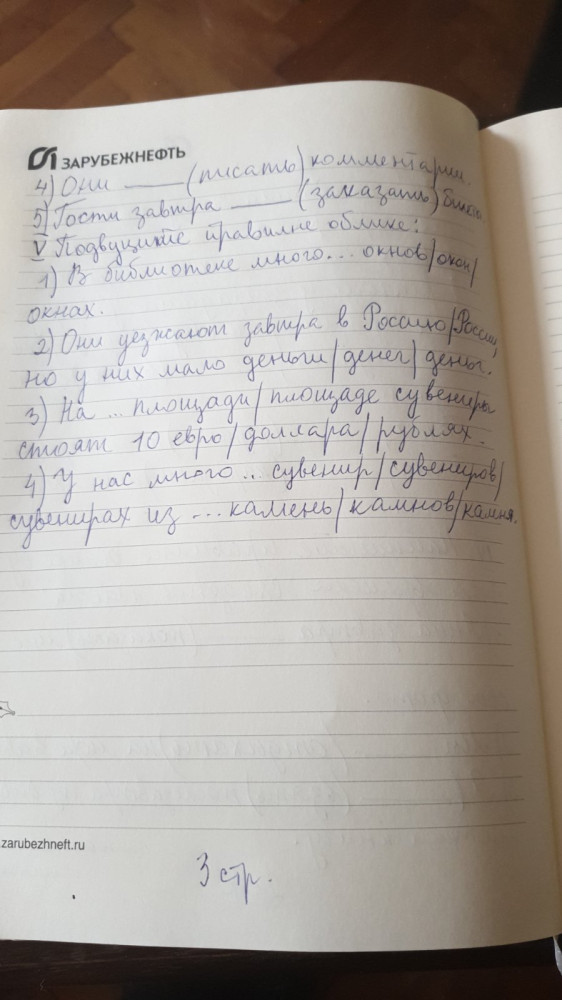 ЗАРУБЕЖНЕФТЬ
4) Они ___ (писать) комментарии.
5) Гости завтра ___ (заказать)
V Подвуците правилне облике:
1) В библиотеке много... окнов/окон/
окнах.
2) Они уезжают завтра в Россию/России,
но у них мало деньги/денег/деньг.
3) На ... площади/площаде сувениры
стоят 10 евро/доллара/рублях.
4) У нас много ... сувенир/сувениров/
сувенирах из ... камень/камнов/камня.
zarubezhneft.ru
3 стр.